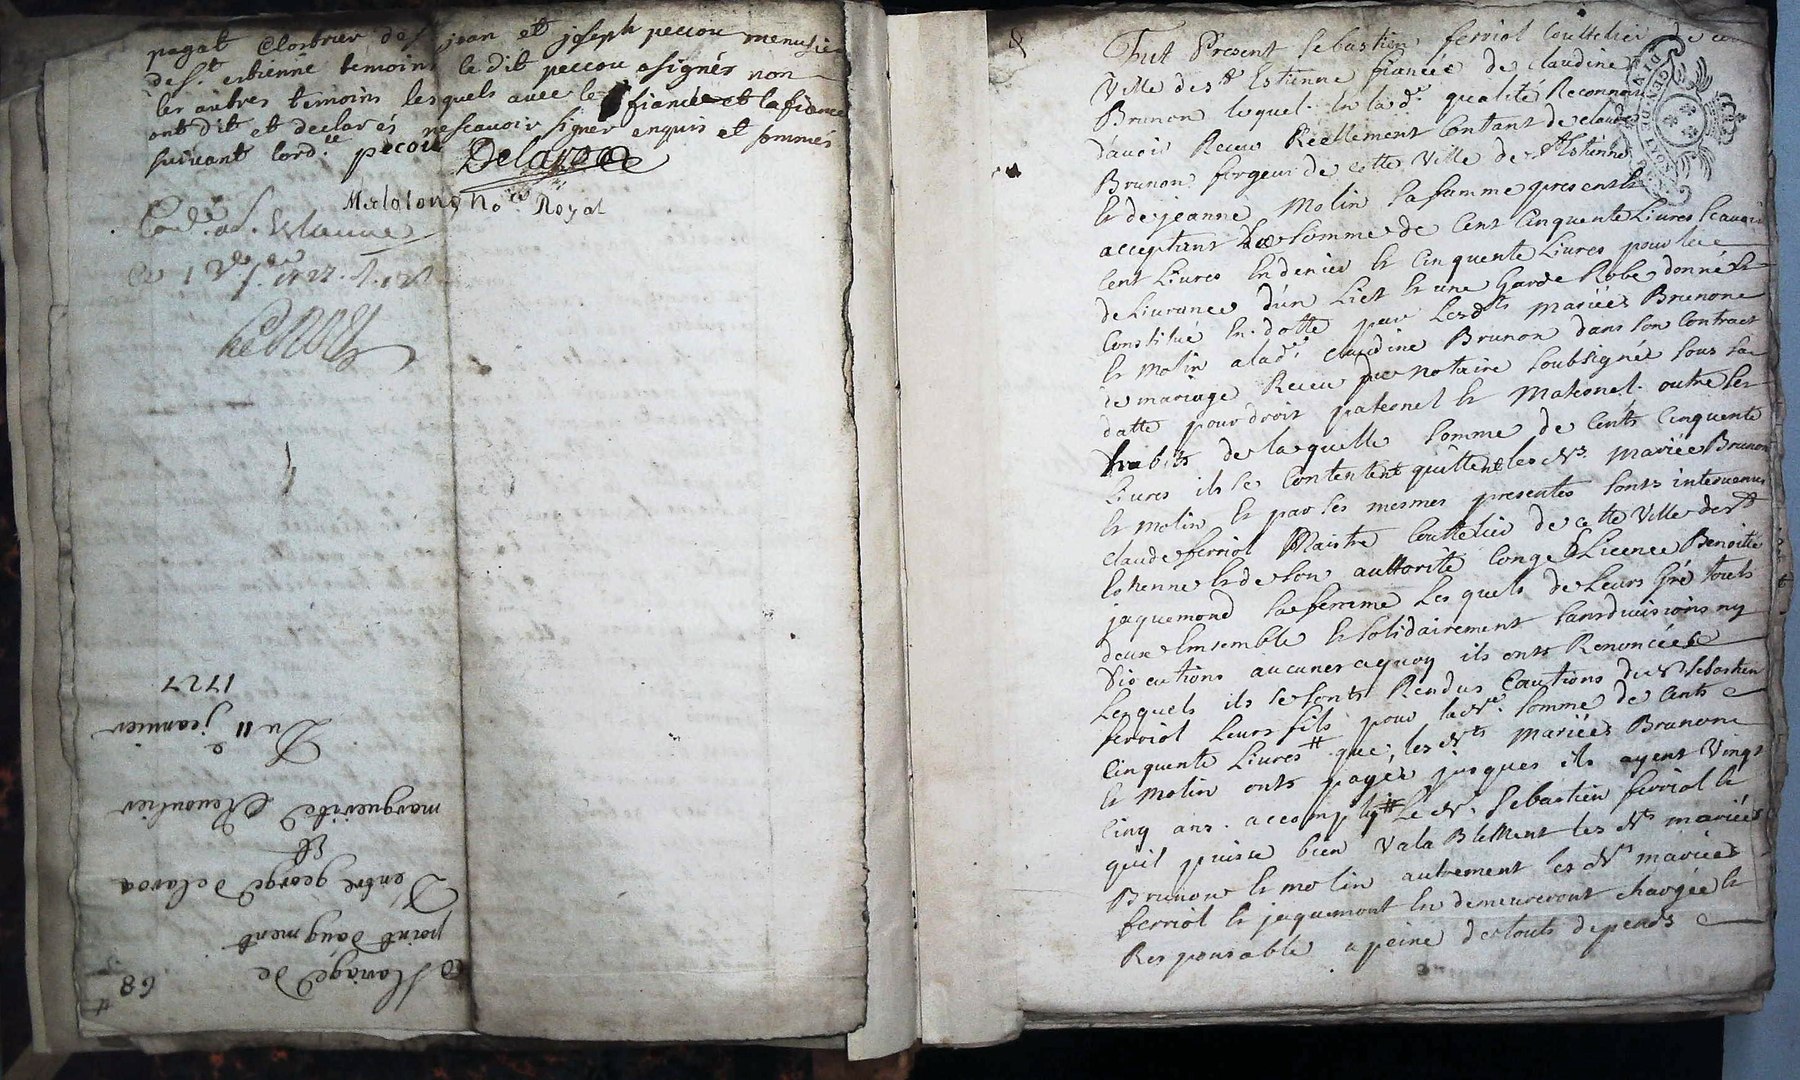 pagat Cloutrier de St jean et joseph peccou menusier
de St estienne temoins le dit peccou a signés non
les autres temoins lesquels avec le fiancée et la fiancée
ont dit et declarés nescavoir signer enquis et sommés
suivant lord.ce pecou Delaroa
No.re Royal
Du 11 jeanvier
1727
68
Mariage de
point daugment
D'entre george Delaroa
Et
marguerite
Fut Present Sebastien ferriol Couttelier de cette
Ville de St Estienne fiancée de Claudine
Brunon lequel En lad.e qualité Reconnoit
davoir Receu Réellement Contant de claude
Brunon forgeur de cette Ville de St Estienne
Et de jeanne Molin sa famme presents Et
acceptant La Somme de Cent Cinquente Livres Scavoir
Cent Livres En denier Et Cinquente Livres pour la
deLivrance d'un Lict Et une Garde Robe donné Et
Constitué En dotte par Lesdts mariées Brunon
Et Molin a lad.e Claudine Brunon dans Son Contract
de mariage Receu du notaire Soubsigné Sous sa
datte pour droit paternel Et Maternel outre ses
habits de laquelle Somme de Cents Cinquente
Livres ils se Contentent quittent les dts mariées Brunon
Et molin Et par les mesmes presentes Sonts intervenus
Claude ferriol Maistre Couttelier de cette Ville de St
Estienne Et de Son authorité Congé Et Licence Benoitte
jaquemond Sa femme Les quels de Leurs Gré touts
deux Ensemble Et Solidairement Sans divisions ny
discutions aucunes aquoy ils onts Renoncées
Lesquels ils se sonts Rendus Cautions dud. Sebastien
ferriol Leurs fils pour lad.e Somme de Cents
Cinquente Livres que les dts mariées Brunon
Et Molin onts payés jusques ils ayent Vingt
Cinq ans accomplis Led. Sebastien ferriol Et
qu'il puisse bien ValaBlement les dts mariées
Brunon Et molin autrement les dts mariées
ferriol Et jaquemont En demeureront chargée Et
Responsable a peine de touts depends